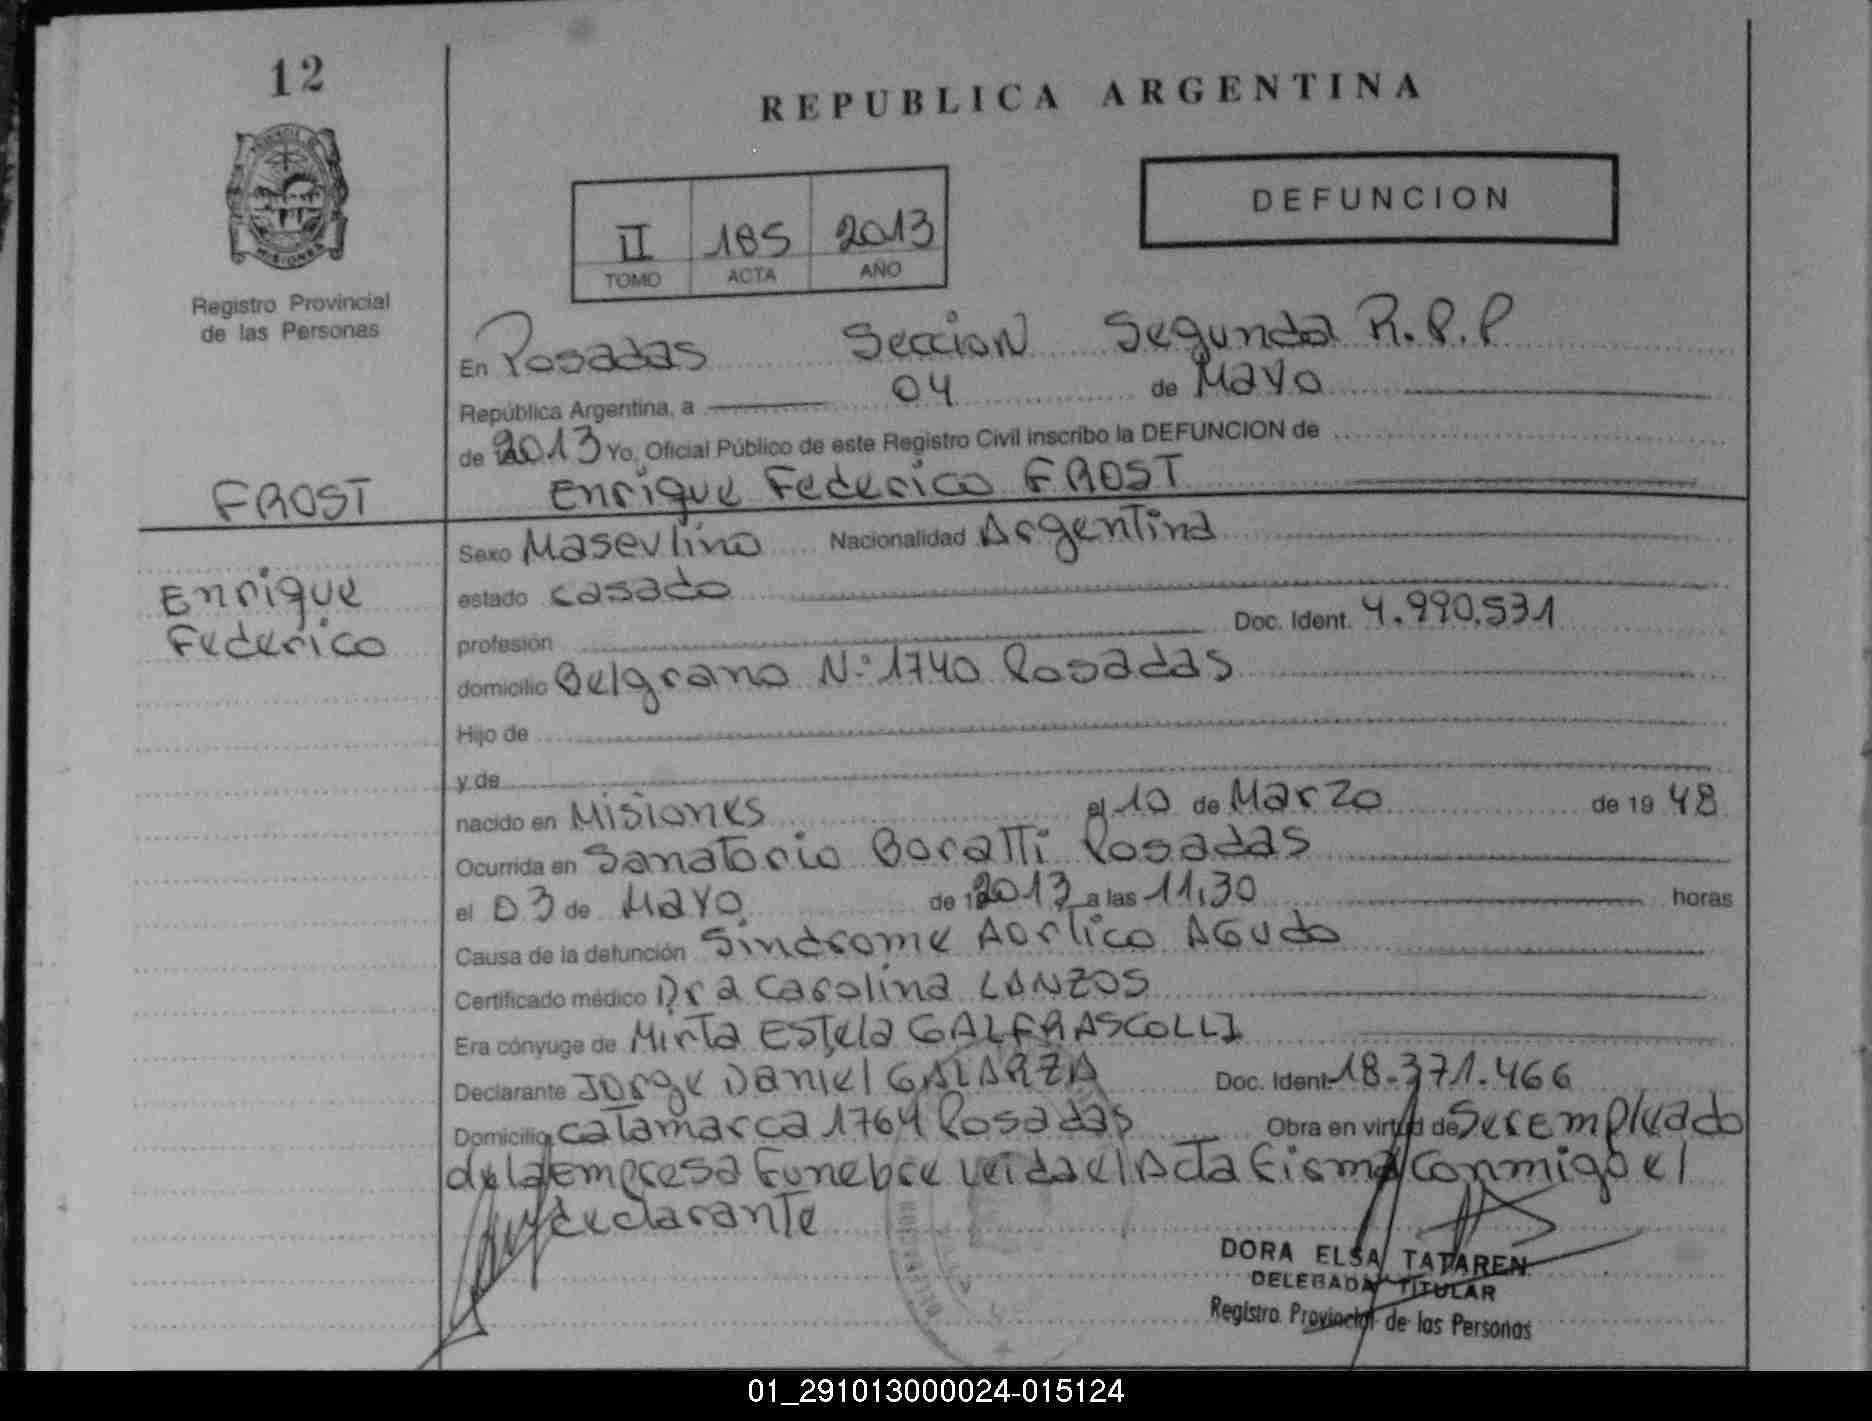 12
REPUBLICA ARGENTINA
PROVINCIA DE
MISIONES
DEFUNCION
II 185 2013
TOMO ACTA AÑO
Registro Provincial
de las Personas
En Posadas Seccion Segunda R.P.P
República Argentina, a 04 de Mayo
de 2013 Yo, Oficial Público de este Registro Civil inscribo la DEFUNCION de
FROST
Enrique Federico FROST
Sexo Masculino Nacionalidad Argentina
Enrique
Federico
estado casado
profesión Doc. Ident. 4.990.531
domicilio Belgrano N° 1740 Posadas
Hijo de
y de
nacido en Misiones el 10 de Marzo de 19 48
Ocurrida en Sanatorio Boratti Posadas
el 03 de Mayo de 2013 a las 11,30 horas
Causa de la defunción Sindrome Aortico Agudo
Certificado médico Dra Carolina LANZOS
Era cónyuge de Mirta Estela GALFRASCOLLI
Declarante Jorge Daniel GALARZA Doc. Ident 18.371.466
Domicilio Catamarca 1764 Posadas Obra en virtud de Ser empleado
de la empresa Funebre Leida el Acta Firma Conmigo el
declarante
DORA ELSA TATAREN
DELEGADA TITULAR
Registro Provincial de las Personas
01_291013000024-015124